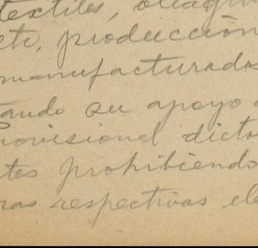 textiles, oleagin
etc, producción
manufacturados
tando su apoyo a
Provisional dicta
tes prohibiendo
ras respectivas ele